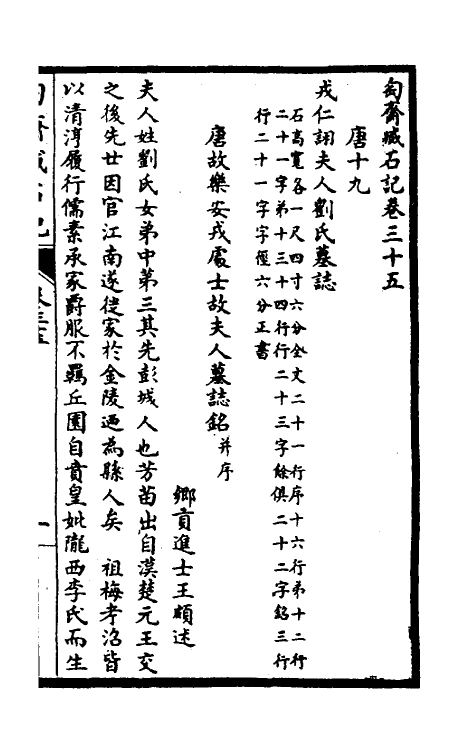 匋齋臧石記卷三十五
唐十九
戎仁詡夫人劉氏墓誌
石高寛各一尺四寸六分全文二十一行序十六行弟十二行
二十一字弟十三十四行行二十三字餘俱二十二字銘三行
行二十一字字徑六分正書
唐故樂安戎處士故夫人墓誌銘并序
鄉貢進士王頔述
夫人姓劉氏女弟中第三其先彭城人也芳苗出自漢楚元王交
之後先世因官江南遂徙家於金陵迺為縣人矣 祖梅考洺皆
以清淳履行儒素承家爵服不羈丘園自賁皇妣隴西李氏而生